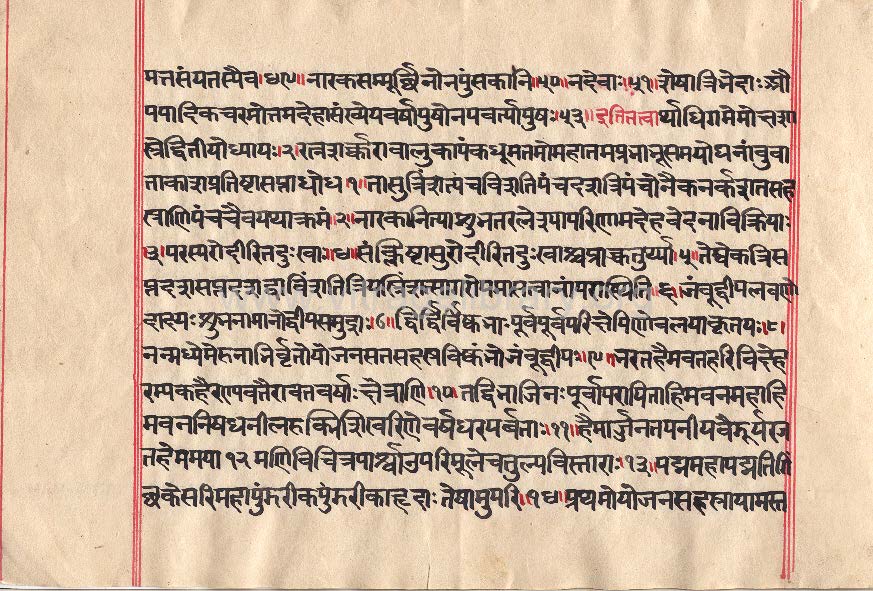 मत्तसंयतस्यैव ४९ नारकसम्मूर्छिनोनपुंसकानि ५० नदेवाः ५१ शेषात्रिवेदाः औ
पपादिकचरमोत्तमदेहासंख्येयवर्षायुषोनपवर्त्यायुषः ५३ इतितत्वार्थाधिगमेमोक्षशा
स्त्रेद्वितीयोध्यायः २ रत्नशर्क्करावालुकापंकधूमतमोमहातमप्रभाभूसमयोघनांबुवा
ताकाशप्रतिष्ठासप्ताधोध १ तासुत्रिंशत्पंचविंशतिपंचदशत्रिपंचोनैकनर्कशतसह
स्त्राणिपंचचैवयथाक्रमं २ नारकानित्याशुभतरलेश्यापरिणामदेहवेदनाविक्रियाः
३ परस्परोदीरितदुःखाः ४ संक्लिष्टासुरोदीरितदुःखाश्चप्राक्चतुर्थ्याः ५ तेष्वेकत्रिस
प्तदशसप्तदशद्वाविंशतित्रयत्रिंशसागरोपमासत्वानांपरास्थिति ६ जंबूद्वीपलवणो
दादयः शुभनामानोद्वीपसमुद्राः ७ द्विर्द्विर्विष्कंभाः पूर्वपूर्वपरिक्षेपिणोवलयाकृतयः ८
तन्मध्येमेरुनाभिर्वृतोयोजनसतसहस्रविष्कंभोजंबूद्वीपः ९ भरतहैमवतहरिविदेह
रम्यकहैरण्यवतैरावतवर्षाः क्षेत्राणि १० तद्विभाजिनः पूर्वापरायिताहिमवनमहाहि
मवननिषधनीलरुक्मिशिखरिणोवर्षधरपर्वताः ११ हैमार्जुनतपनीयवैडूर्यरज
तहेममया १२ मणिविचित्रपार्श्वाउपरिमूलेचतुल्यविस्ताराः १३ पद्ममहापद्मतिगिं
छकेसरिमहापुंडरीकपुंडरीकाहृदाः तेषामुपरि १४ प्रथमोयोजनसहस्त्रायामस्त